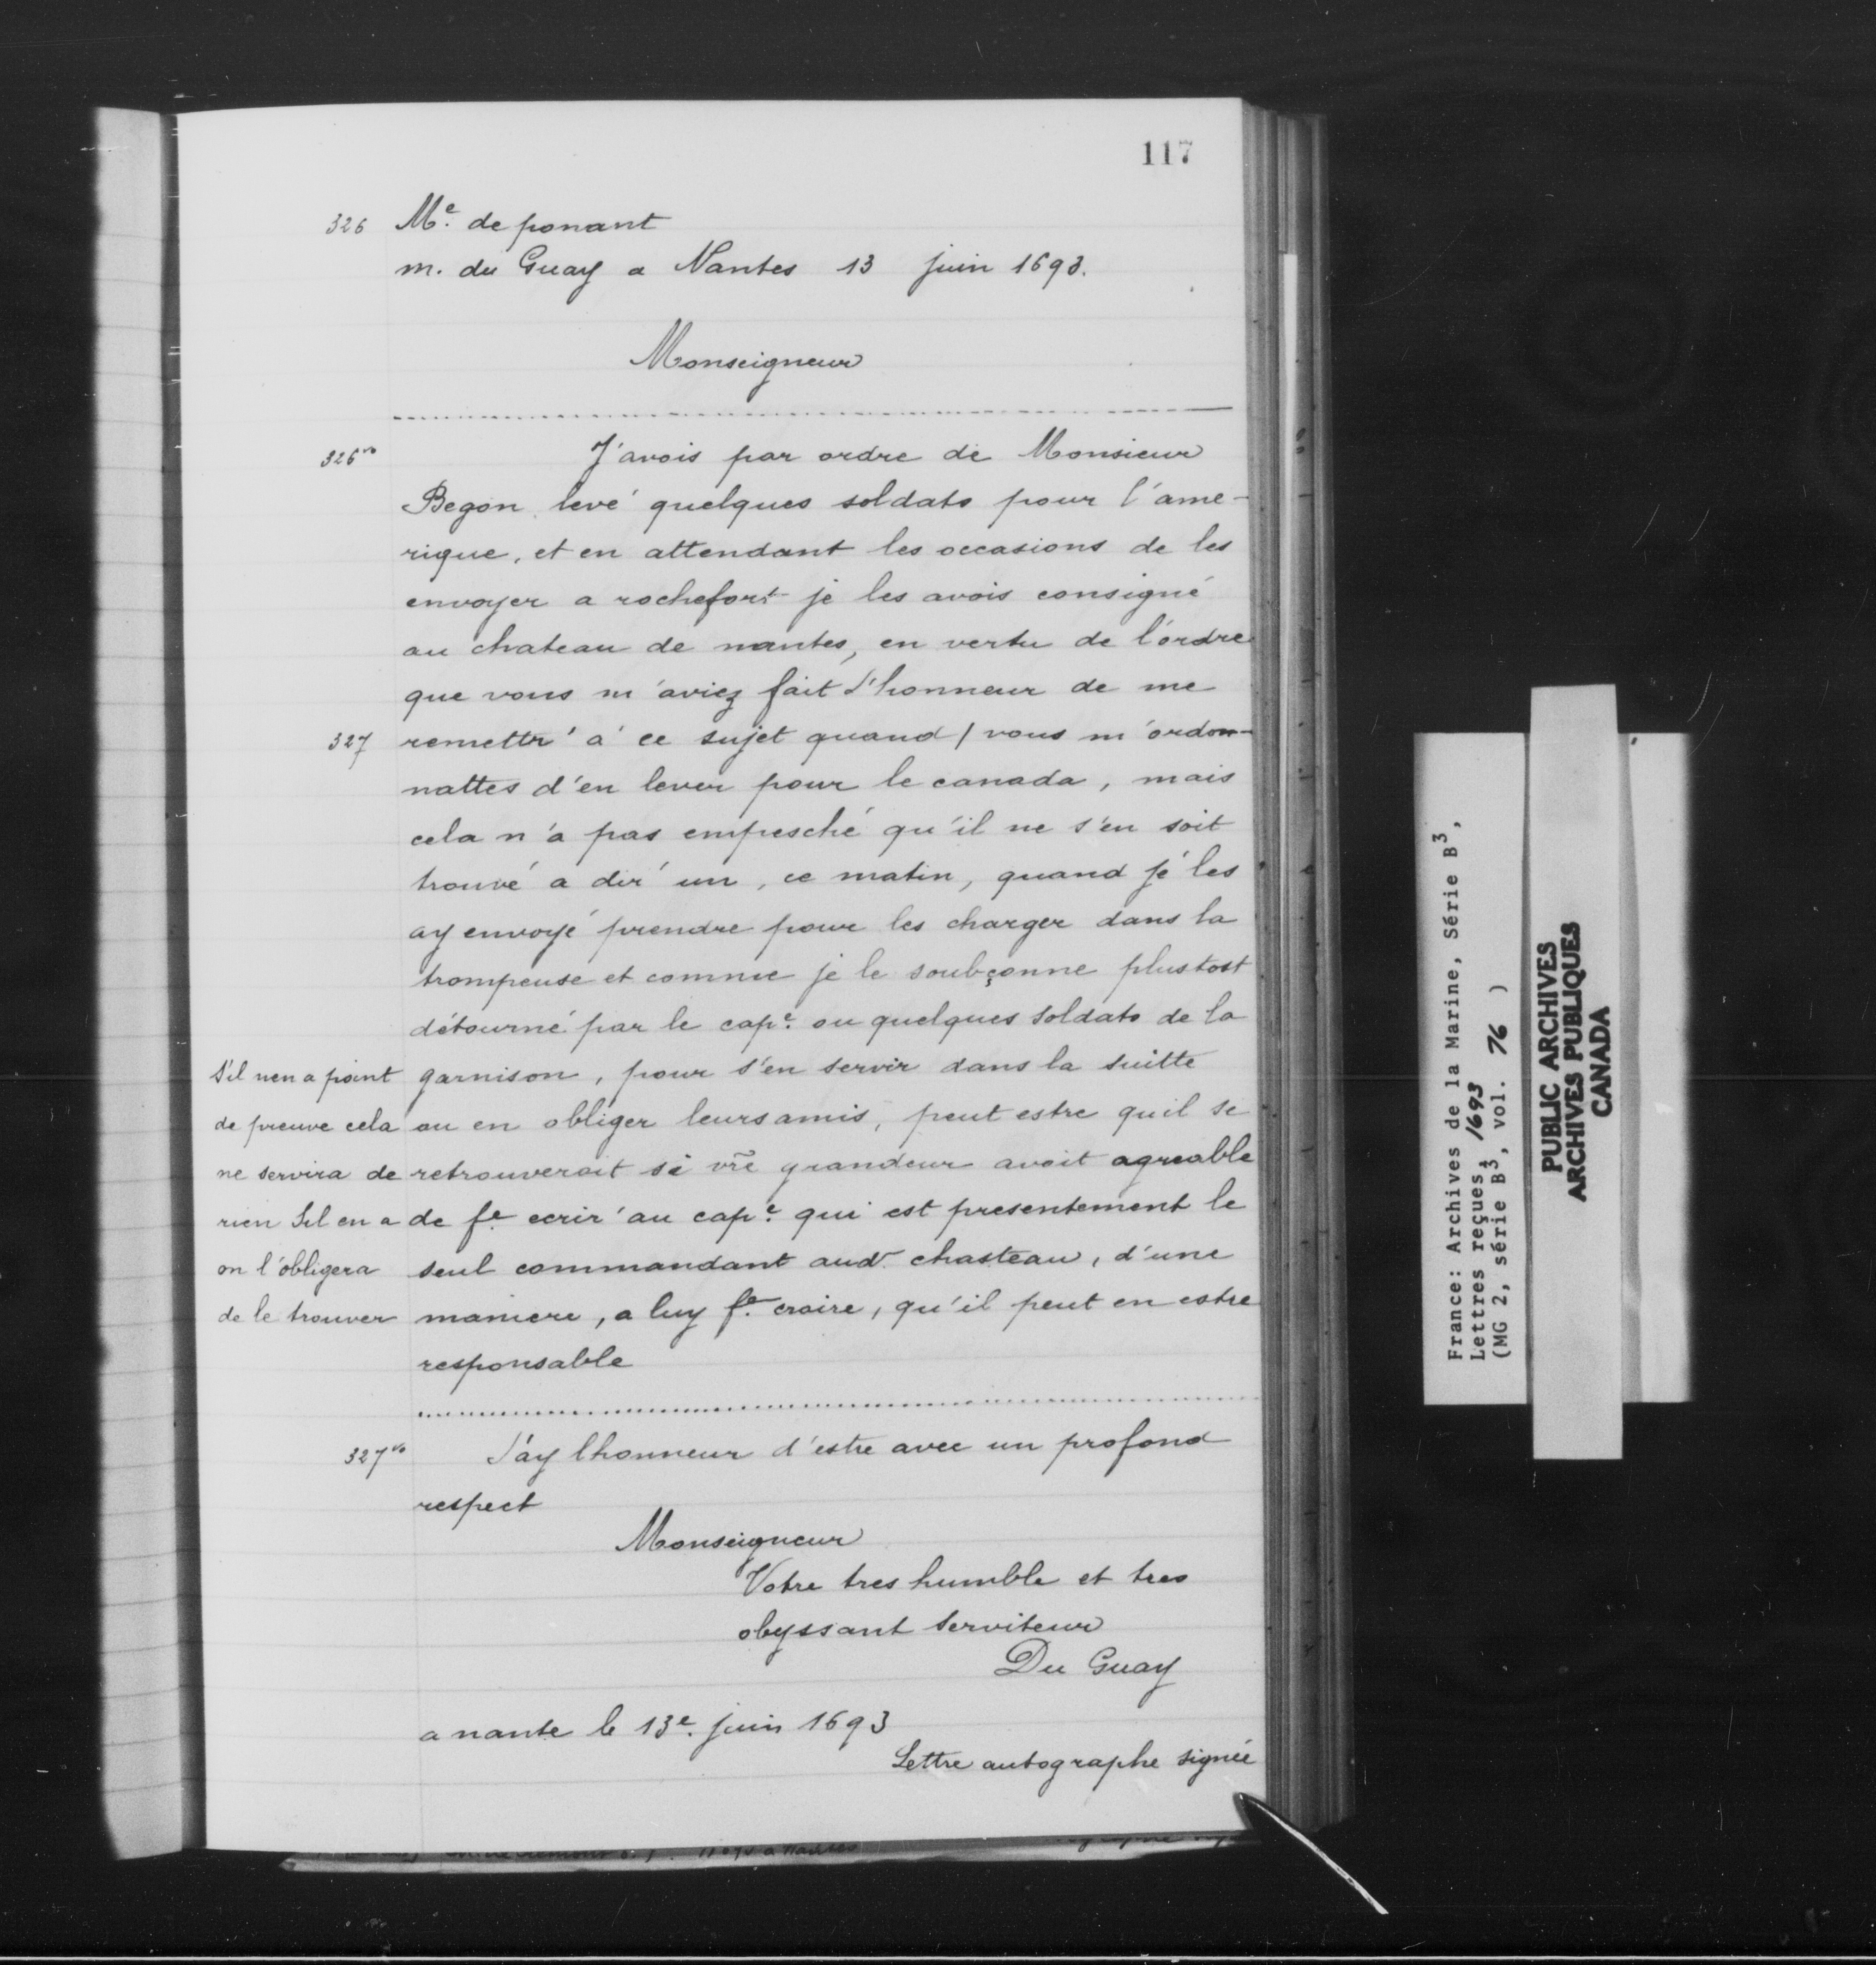 117
326 Me. de ponant
m. du Guay a Nantes 13 juin 1693.
Monseigneur
326vo J'avois par ordre de Monsieur
Begon levé quelques soldats pour l'ame-
rique, et en attendant les occasions de les
envoyer a rochefort je les avois consigné
au chateau de nantes, en vertu de l'ordre
que vous m'aviez fait l'honneur de me
327 remettr' a' ce sujet quand / vous m'ordon-
nattes d'en lever pour le canada, mais
cela n'a pas empesché qu'il ne s'en soit
trouvé a dir' un, ce matin, quand je les
ay envoyé prendre pour les charger dans la
trompeuse et comme je le soubçonne plustost
détourné par le cape. ou quelques soldats de la
garnison, pour s'en servir dans la suitte
ou en obliger leurs amis, peut estre quil se
retrouveroit si vr̃e grandeur avoit agreable
de fe. ecrir' au cape. qui est presentement le
seul commandant aud. chasteau, d'une
maniere, a luy fe. croire, qu'il peut en estre
responsable
S'il nen a point
de preuve cela
ne servira de
rien Sil en a
on l'obligera
de le trouver
327vo J'ay lhonneur d'estre avec un profond
respect
Monseigneur
Votre tres humble et tres
obyssant serviteur
Du Guay
a nante le 13e. juin 1693
Lettre autographe signée
France: Archives de la Marine, Série B3,
Lettres reçues, 1693
(MG 2, série B3, vol. 76 )
PUBLIC ARCHIVES
ARCHIVES PUBLIQUES
CANADA